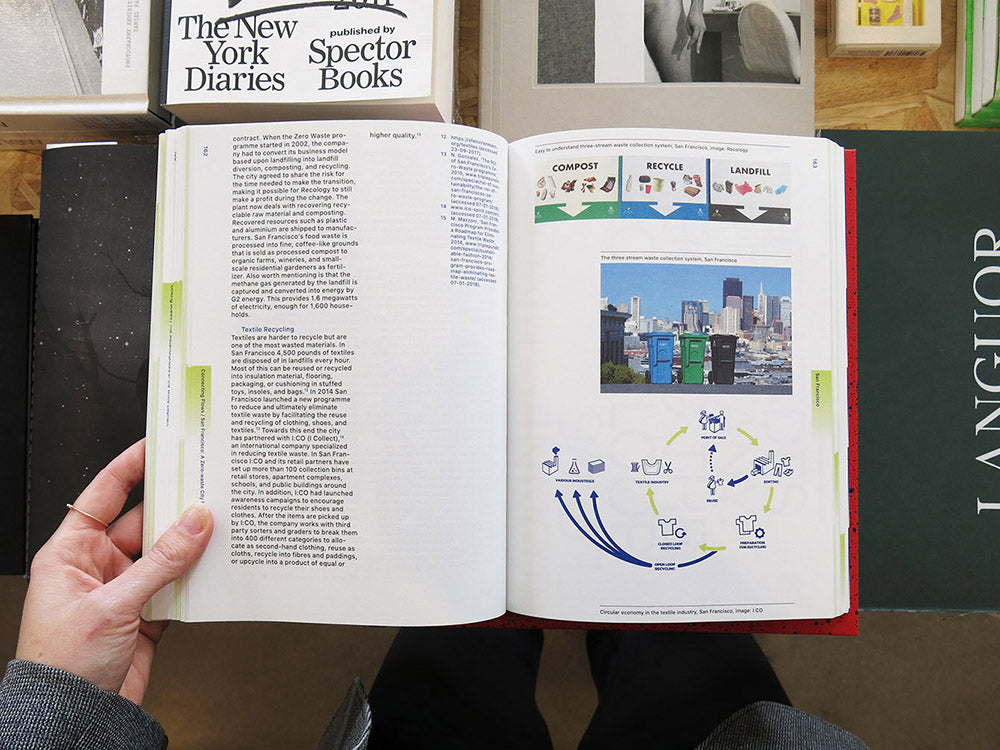 2011
The New
York
Diaries
published by
Spector
Books
162
contract. When the Zero Waste pro-
gramme started in 2002, the compa-
ny had to convert its business model
based upon landfilling into landfill
diversion, composting, and recycling.
The city agreed to share the risk for
the time needed to make the transition,
making it possible for Recology to still
make a profit during the change. The
plant now deals with recovering recy-
clable raw material and composting.
Recovered resources such as plastic
and aluminium are shipped to manufac-
turers. San Francisco's food waste is
processed into fine, coffee-like grounds
that is sold as processed compost to
organic farms, wineries, and small-
scale residential gardeners as fertil-
izer. Also worth mentioning is that the
methane gas generated by the landfill is
captured and converted into energy by
G2 energy. This provides 1.6 megawatts
of electricity, enough for 1,600 house-
holds.
Textile Recycling
Textiles are harder to recycle but are
one of the most wasted materials. In
San Francisco 4,500 pounds of textiles
are disposed of in landfills every hour.
Most of this can be reused or recycled
into insulation material, flooring,
packaging, or cushioning in stuffed
toys, insoles, and bags.¹² In 2014 San
Francisco launched a new programme
to reduce and ultimately eliminate
textile waste by facilitating the reuse
and recycling of clothing, shoes, and
textiles.¹³ Towards this end the city
has partnered with I:CO (I Collect),¹⁴
an international company specialized
in reducing textile waste. In San Fran-
cisco I:CO and its retail partners have
set up more than 100 collection bins at
retail stores, apartment complexes,
schools, and public buildings around
the city. In addition, I:CO had launched
awareness campaigns to encourage
residents to recycle their shoes and
clothes. After the items are picked up
by I:CO, the company works with third
party sorters and graders to break them
into 400 different categories to allo-
cate as second-hand clothing, reuse as
cloths, recycle into fibres and paddings,
or upcycle into a product of equal or
higher quality.¹⁵
12 https://sfenvironment.
org/textiles (accessed
23-09-2017).
13 N. Gonzalez, "The ROI
of San Francisco's Ze-
ro-Waste programme",
2015,
(accessed 07-01-2018).
14
(accessed 07-01-2018).
15 M. Mazzoni, "San Fran-
cisco Program Provides
a Roadmap for Elimi-
nating Textile Waste",
2014,
07-01-2018).
Connecting Flows / San Francisco: A Zero-waste City
Easy to understand three-stream waste collection system, San Francisco, image: Recology
163
COMPOST
RECYCLE
LANDFILL
The three stream waste collection system, San Francisco
San Francisco
POINT OF SALE
VARIOUS INDUSTRIES
TEXTILE INDUSTRY
SORTING
REUSE
CLOSED LOOP
RECYCLING
PREPARATION
FOR RECYCLING
OPEN LOOP
RECYCLING
Circular economy in the textile industry, San Francisco, image: I:CO
LANGLIOR